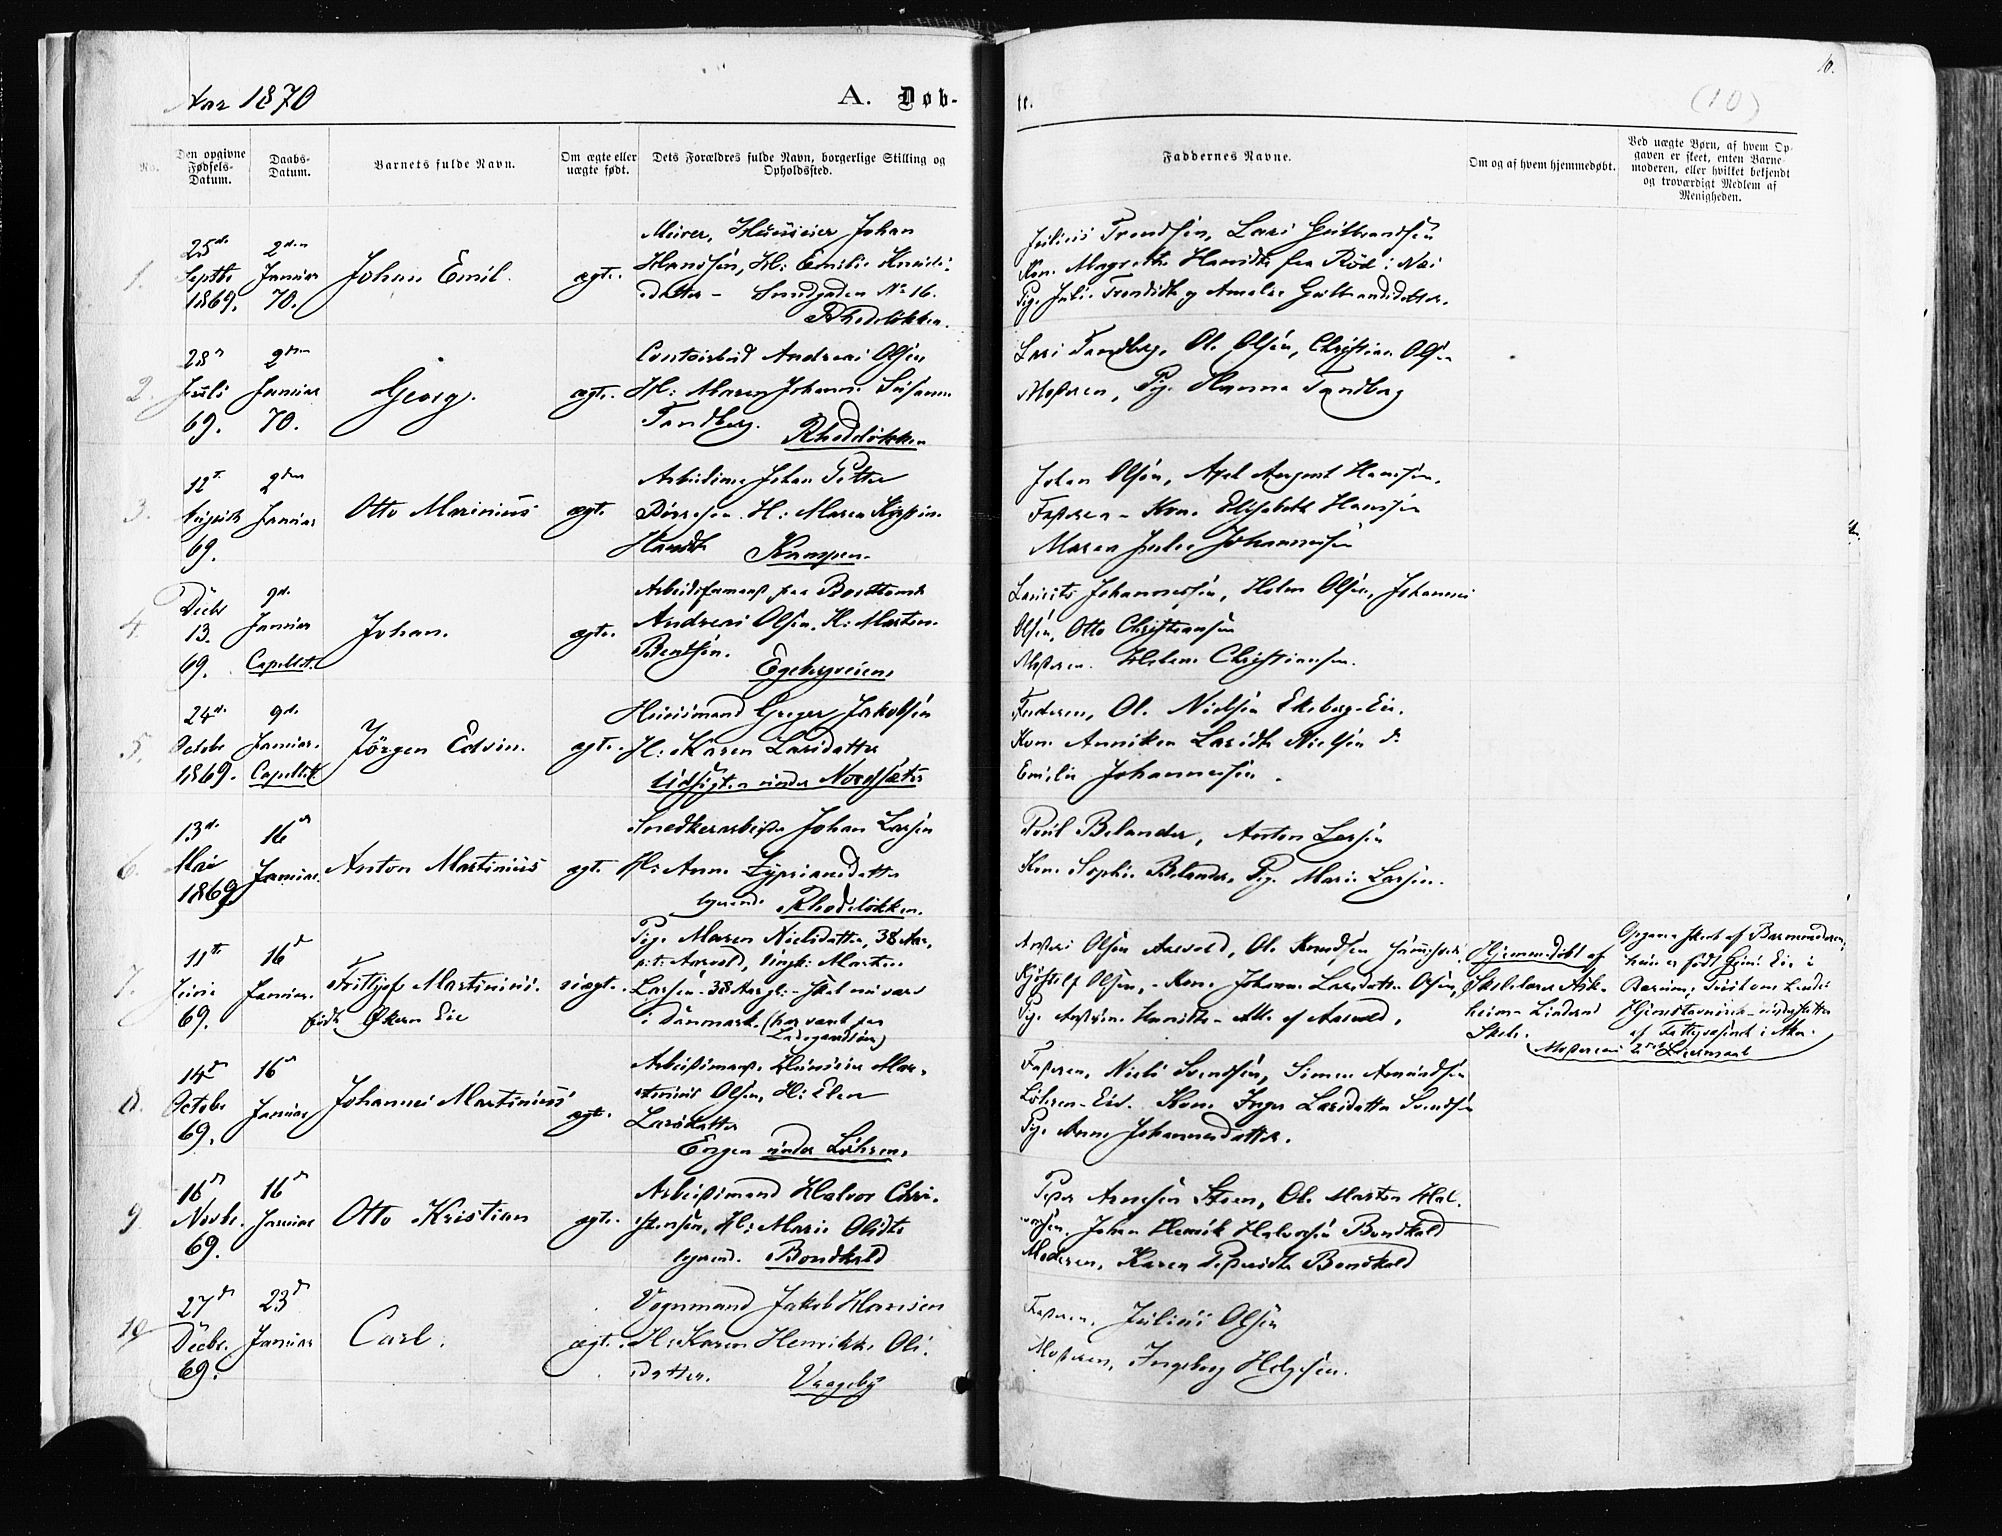 10.
(10)
Aar 1870
A. Døb-
te.
No.
Den opgivne Fødsels-Datum.
Daabs-Datum.
Barnets fulde Navn.
Om ægte eller uægte født.
Dets Forældres fulde Navn, borgerlige Stilling og Opholdssted.
Faddernes Navne.
Om og af hvem hjemmedøbt.
Ved uægte Børn, af hvem Op-
gaven er skeet, enten Barne-
moderen, eller hvilket bekjendt
og troværdigt Medlem af
Menigheden.
1.
25de Septbr 1869.
2den Januar 70.
Johan Emil.
ægte.
Murer, Huuseier Johan
Hanssen, H: Emilie Knuds-
datter - Sundgaden No 16.
Rhodeløkken.
Julius Trondsen, Lars Gulbrandsen
Kone Magrethe Hansdtr fra Röd i Næs
Pige Julie Trondsdtr og Amalie Gulbrandsdatter.
2.
28 Juli 69.
2den Januar 70.
Georg.
ægte.
Contoirbud Andreas Olsen
H: Maren Johanne Susanne
Tandberg. Rhodeløkken
Lars Tandberg, Ole Olsen, Christian Olsen
Moderen, Pige Hanna Tandberg
3.
12t August 69.
2den Januar
Otto Marinius
ægte.
Arbeidsmand Johan Petter
H: Maren
Hansdtr Kampen.
Johan Olsen, Axel August Hanssen,
Faderen - Kone Elisabeth Hanssen
Maren Julie Johannesen
4.
Decbr 13. 69.
9de Januar Capellet.
Johan.
ægte.
Arbeidsformand fra
Andreas Olsen. H: Martine
Bentsen. Egebergveien.
Laurits Johannessen, Holm Olsen, Johannes
Olsen, Otto Christiansen
Moderen. Helene Christiansen.
5.
24de Octobr 1869.
9de Januar. Capellet
Jörgen Edvin.
ægte.
Huusmand Greger Jakobsen
H: Karen Larsdatter
Udsigten under Nordsæter
Faderen, Ole Nielsen Ekeberg-Eie.
Kone Anniken Larsdtr Nielsen do
Emilie Johannesen.
6.
13de Mai 1869
16 Januar.
Anton Martinius
ægte.
Snedkerarbeider Johan Larsen
H: Anne Zyprianesdatter
logerende Rhodeløkken.
Poul Belander, Anton Larsen
Kone Sophie Belander, Pige Marie Larsen.
7.
11te Junie 69.
16d Januar.
Fritjof Martinius.
født Økern Eie
uægte.
Pige Maren Nielsdatter, 38 Aar,
p.t. Aarvold, Ungk: Martin
Larsen - 38 Aar gl: - skal nu være
i Danmark. (har været paa
Ladegaardsöen)
Anders Olsen Aarvold, Ole Knudsen
Olsen, - Kone Johanne Larsdatter Olsen,
Pige - Alle af Aarvold.
Hjemmedøbt af
Skolelærer Ask-
heim - Linderud
Skole.
Opgaven skeet af Barnemoderen,
han er født Hjem Eie i
Bærum;
af Fattigvæsenet i Aker.
Moderens 2det Leiermaal
8.
14d Octobr 69.
16 Januar
Johannes Martinius
ægte.
Arbeidsmand Huuseier Mar-
tinius Olsen, H: Elen
Larsdatter
Engen under Löhren.
Faderen, Niels Svendsen, Simen Amundsen
Löhren-Eie. Kone Inger Larsdatter Svendsen
Pige Anne Johannesdatter.
9.
16d Novbr. 69.
16d Januar
Otto Kristian
ægte.
Arbeidsmand Halvor Chri-
stensen, H: Marie Olsdtr
logerende Bondkald
Peder Arnesen Steen, Ole Martin Hal-
vorsen. Johan Henrik Halvorsen Bondkald
Moderen, Karen Pedersdtr Bondkald
10
27d Decbr. 69.
23d Januar
Carl.
ægte.
Vognmand Jakob Hansen
H: Karen Henrikke Ols-
datter. Vaageby
Faderen, Julius Olsen
Moderen, Ingeborg Helgesen.